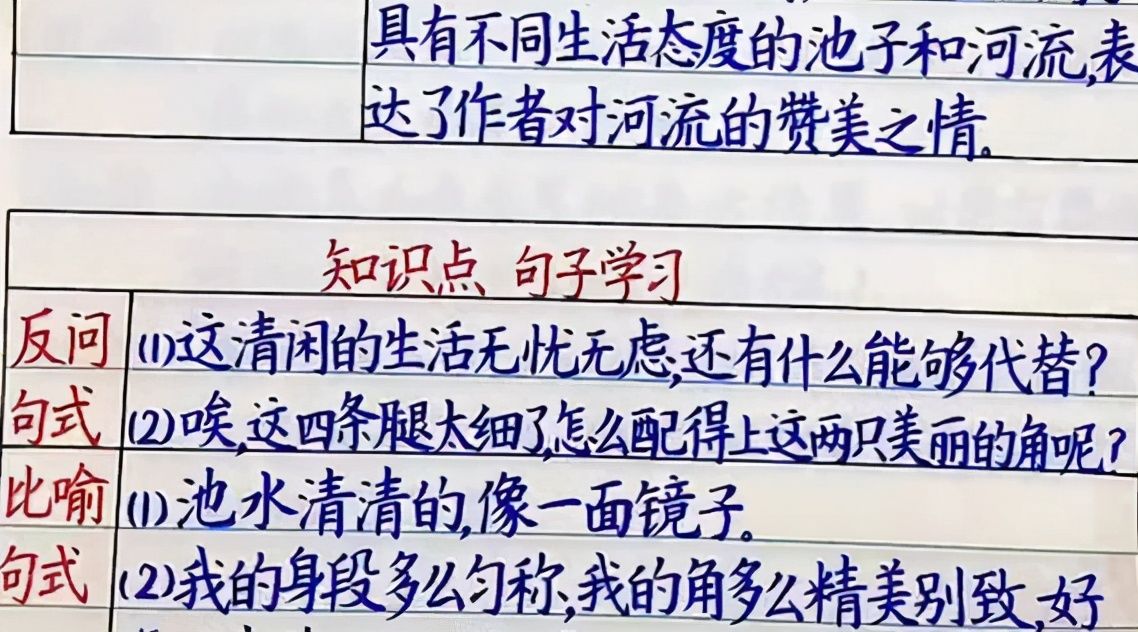 具有不同生活态度的池子和河流,表
达了作者对河流的赞美之情。
知识点 句子学习
反问 (1)这清闲的生活无忧无虑,还有什么能够代替?
句式 (2)唉,这四条腿太细了,怎么配得上这两只美丽的角呢?
比喻 (1)池水清清的,像一面镜子。
句式 (2)我的身段多么匀称,我的角多么精美别致,好